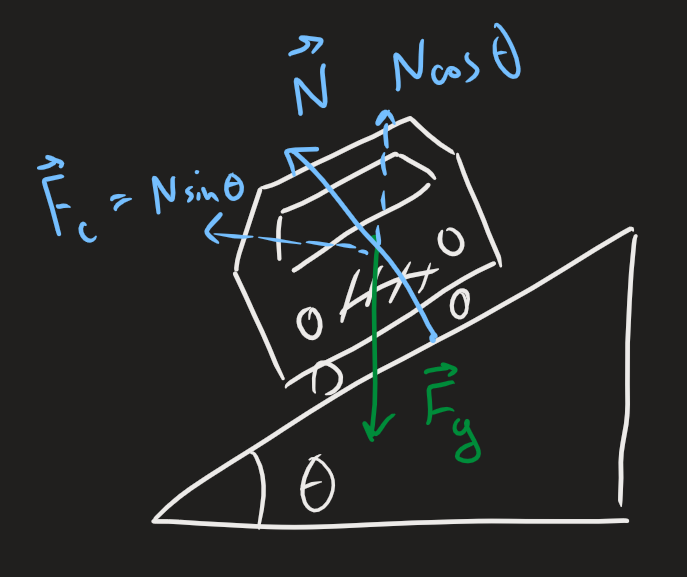 N⃗
N cos θ
F⃗c = N sin θ
F⃗g
θ